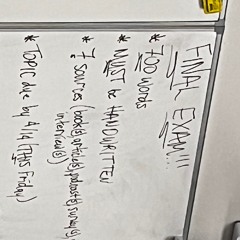 FINAL EXAM!!!
* 700 words
* MUST be HANDWRITTEN
* 7 sources (book(s), article(s), podcast(s), survey(s),
interview(s)
* TOPIC due by 4/14 (THIS Friday)